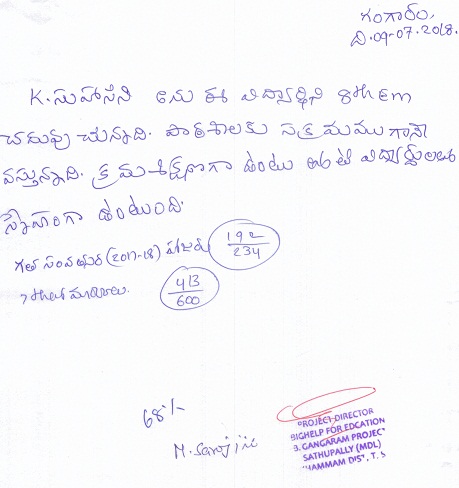 గంగారం,
ది.09-07-2018.
K. సుహాసిని అను ఈ విద్యార్థిని 8th EM
చదువు చున్నది. పాఠశాలకు సక్రమముగానే
వస్తున్నది. క్రమశిక్షణగా ఉంటు ఇతర విద్యార్థులతో
స్నేహంగా ఉంటుంది.
గత సంవత్సర (2017-18) హాజరు 192/234
7th మార్కులు. 413/600
68%
M. Sarojini
PROJECT DIRECTOR
BIGHELP FOR EDCATION
3. GANGARAM PROJEC
SATHUPALLY (MDL)
HAMMAM DIS", T. S